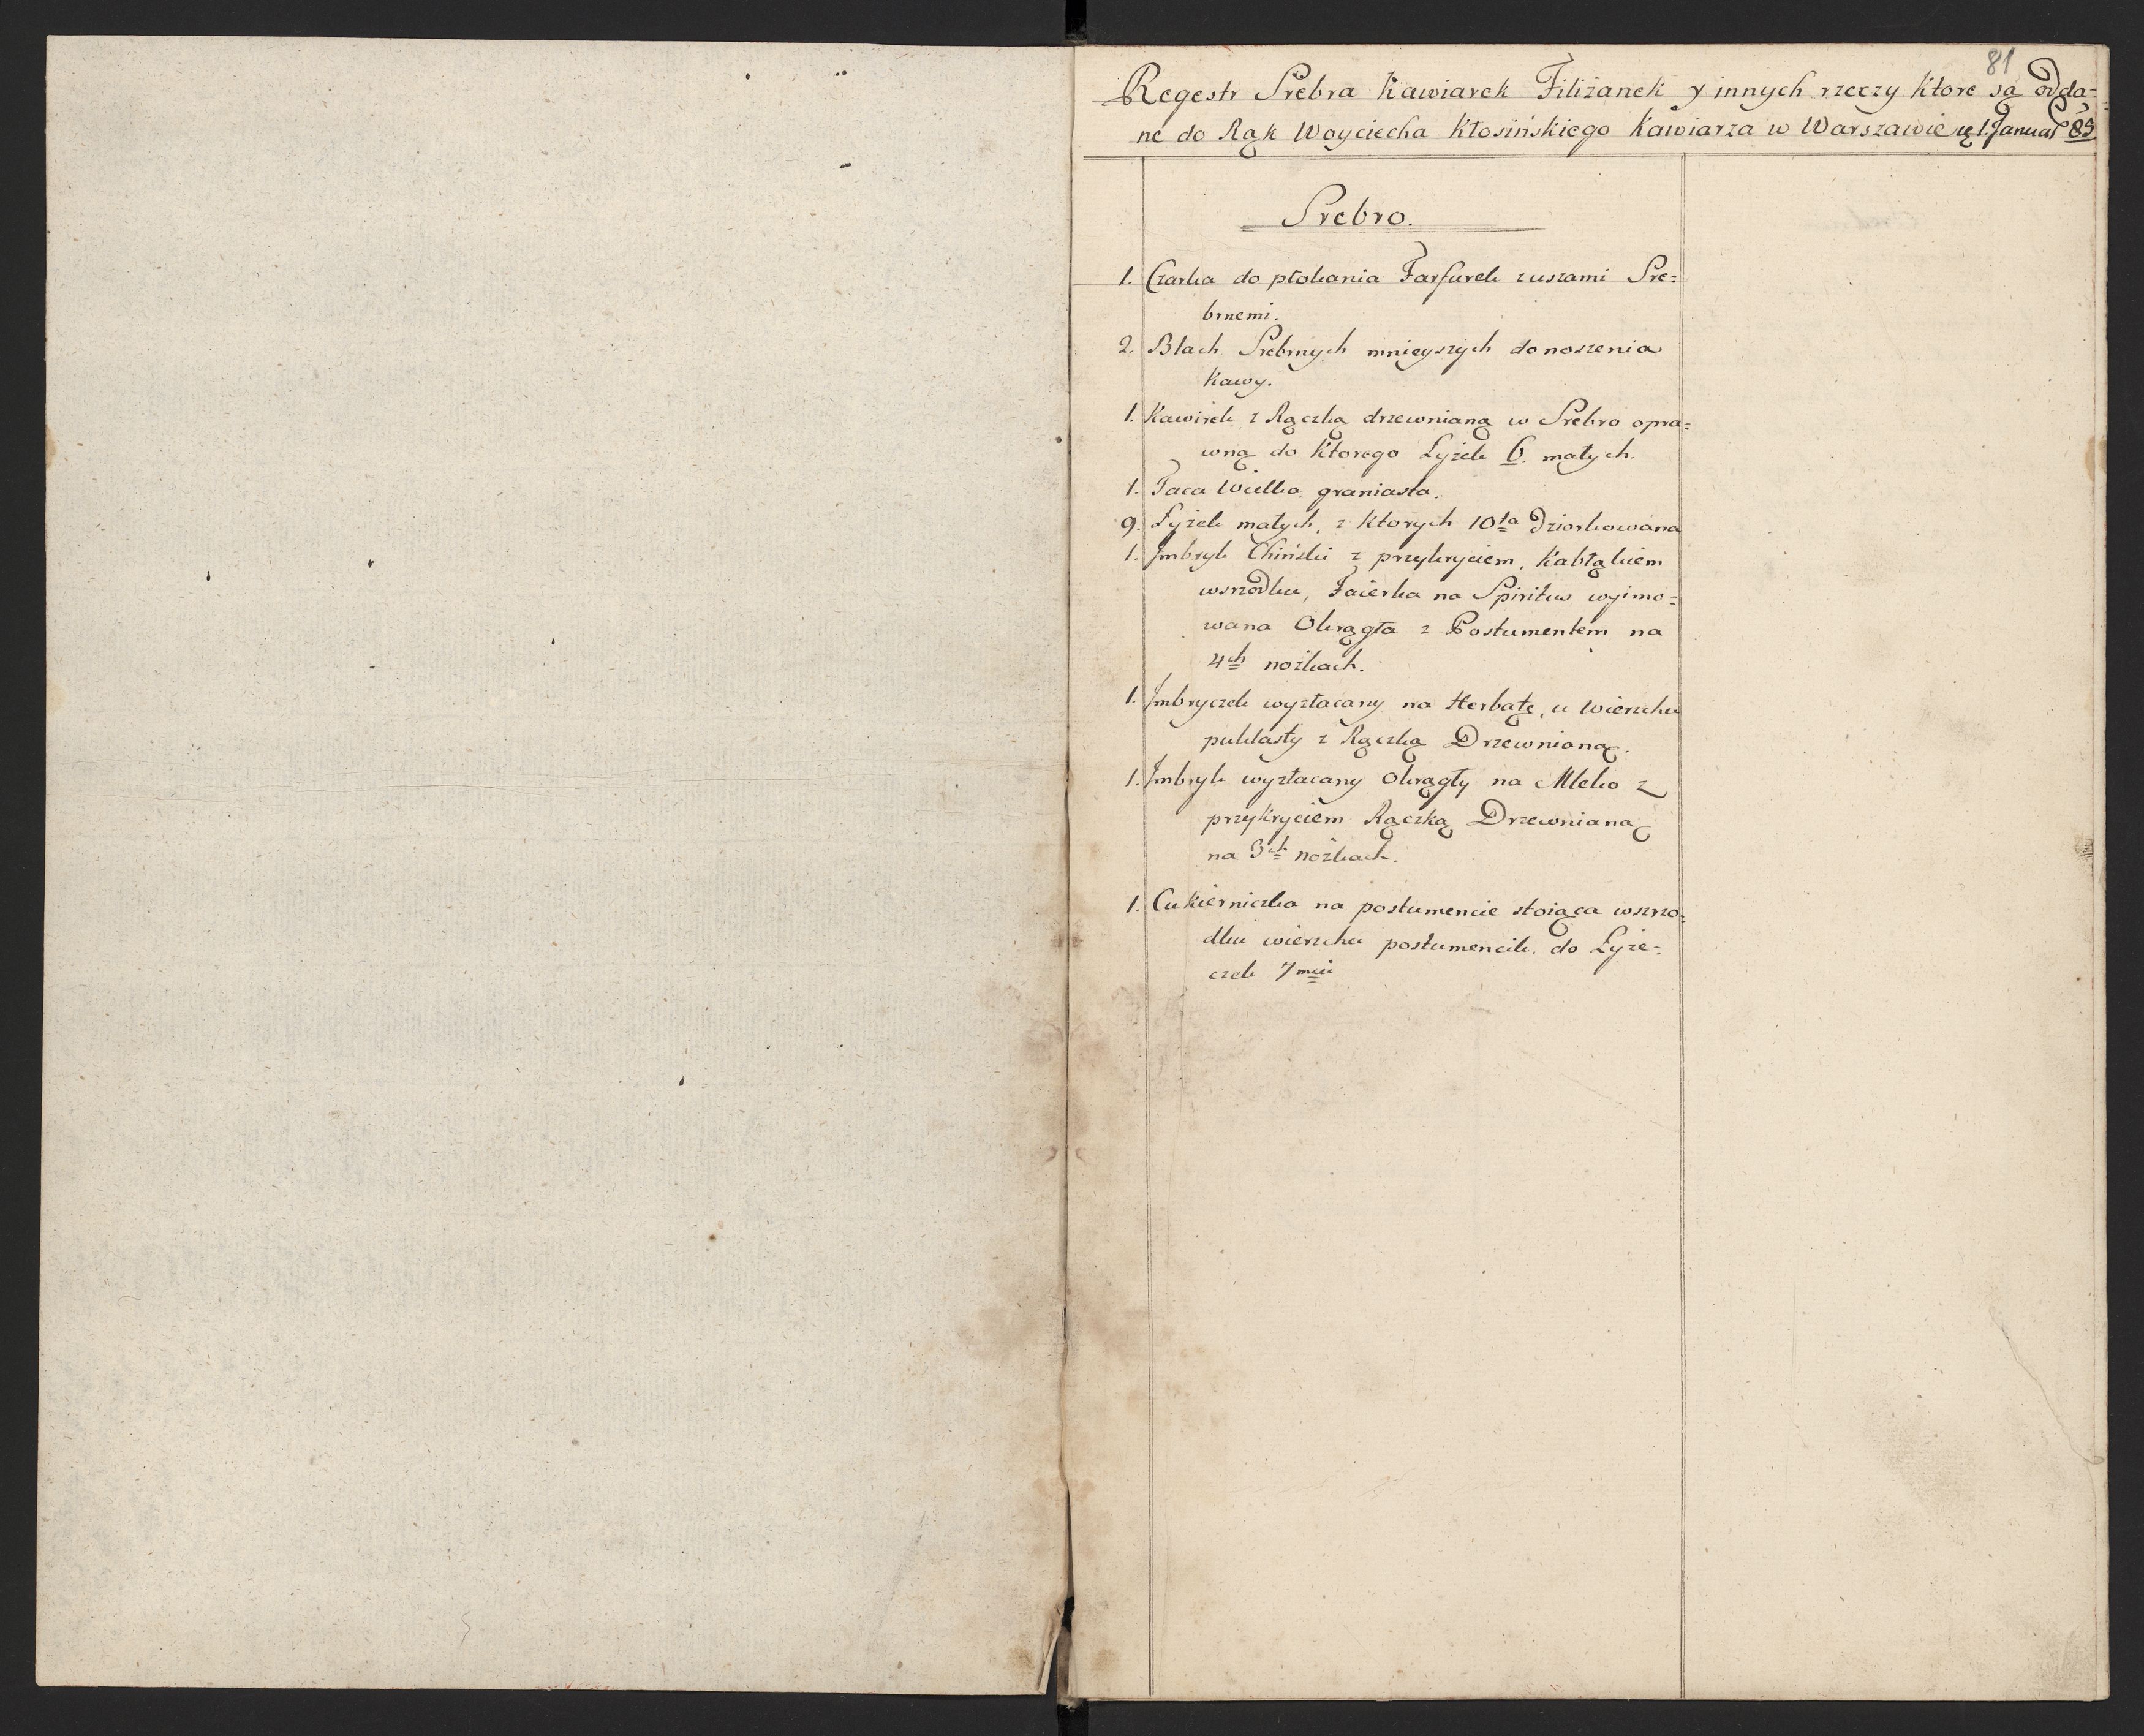 81
Regestr Srebra Kawiarek Filiżanek y innych rzeczy Ktore są odda=
ne do Rąk Woyciecha Kłosińskiego Kawiarza w Warszawie 1. Januar 85
Srebro.
1. Czarka do płokania Farfurek zuszami Sre=
brnemi.
2. Blach Srebrnych mnieyszych do noszenia
Kawy.
1. Kawirek z Rączką drzewnianą w Srebro opra=
wną do Ktorego Łyżek 6. małych.
1. Taca Wielka graniasta.
9. Łyżek małych, z Ktorych 10ta Dziorkowana
1. Jmbryk Chiński z przykryciem, Kabłąkiem
wsrzodku, Faierka na Spiritus wyimo=
wana Okrągła z Postumentem na
4ch nożkach.
1. Jmbryczek wyzłacany na Herbatę, u Wierzchu
puklasty z Rączką Drzewnianą.
1. Jmbryk wyzłacany Okrągły na Mleko z
przykryciem Rączką Drzewnianą
na 3ch nożkach.
1. Cukierniczka na postumencie stoiąca wszrzo=
dku wierzchu postumencik. do Łyże=
czek 7miu